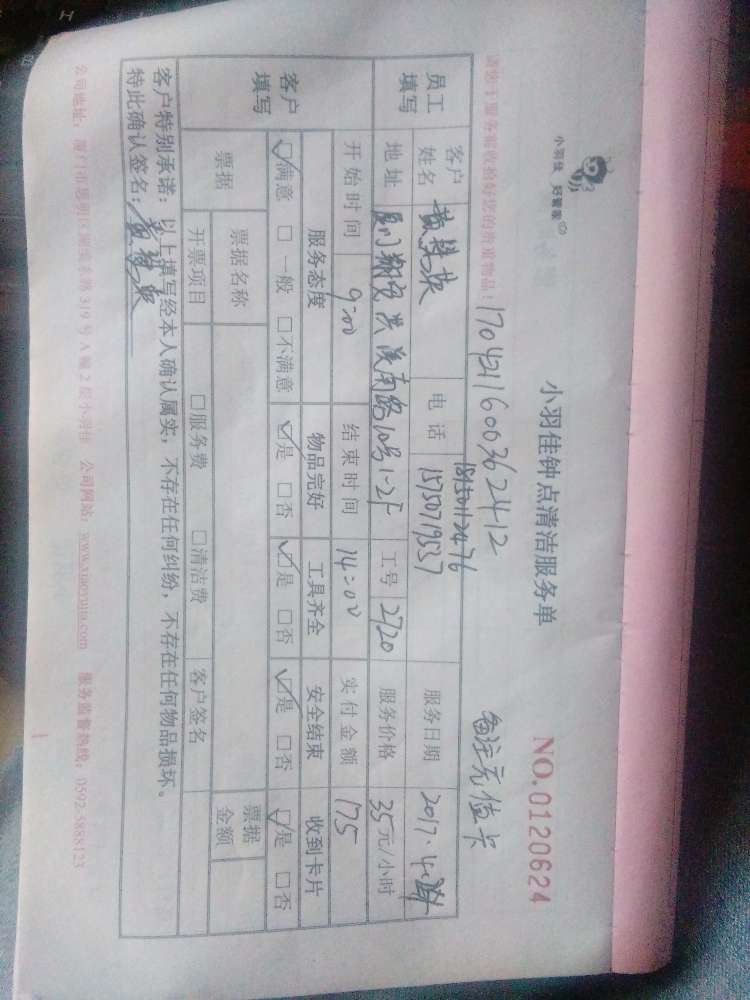 小羽佳 好管家
小羽佳钟点清洁服务单
NO.0120624
请您于服务前收拾好您的贵重物品！
1704211600362412
备注充值卡
员工填写
客户姓名
电话
18950112476
服务日期
2017.4.
地址
厦门翔安
洪溪南路10号1-2F
工号 2720
服务价格 35元/小时
客户填写
开始时间 9:00 结束时间 14:00 实付金额 175
服务态度 物品完好 工具齐全 安全结束 收到卡片
☑满意 □一般 □不满意 ☑是 □否 ☑是 □否 ☑是 □否 ☑是 □否
票据 票据名称 票据金额
开票项目 □服务费 □清洁费 客户签名
客户特别承诺：以上填写经本人确认属实，不存在任何纠纷，不存在任何物品损坏。
特此确认签名：
公司地址：厦门市思明区 319号A幢2层小羽佳 公司网站：www.xiaoyujia.com 服务监督热线：0592-5888123